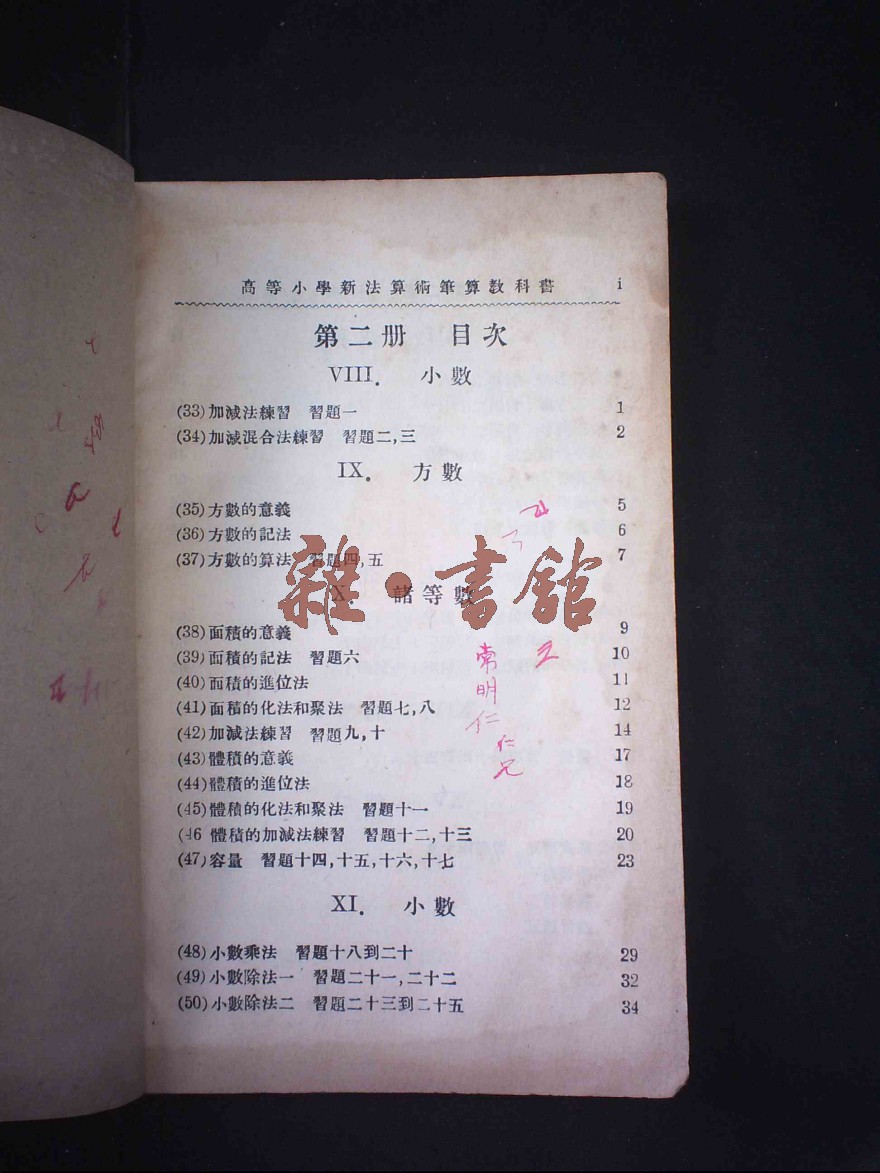 高等小學新法算術筆算教科書 i
第二册 目次
VIII. 小數
(33)加減法練習 習題一 1
(34)加減混合法練習 習題二,三 2
IX. 方數
(35)方數的意義 5
(36)方數的記法 6
(37)方數的算法 習題四,五 7
雜·書館
X. 諸等數
(38)面積的意義 9
(39)面積的記法 習題六 10
(40)面積的進位法 11
(41)面積的化法和聚法 習題七,八 12
(42)加減法練習 習題九,十 14
(43)體積的意義 17
(44)體積的進位法 18
(45)體積的化法和聚法 習題十一 19
(46 體積的加減法練習 習題十二,十三 20
(47)容量 習題十四,十五,十六,十七 23
常明仁
仁兄
XI. 小數
(48)小數乘法 習題十八到二十 29
(49)小數除法一 習題二十一,二十二 32
(50)小數除法二 習題二十三到二十五 34